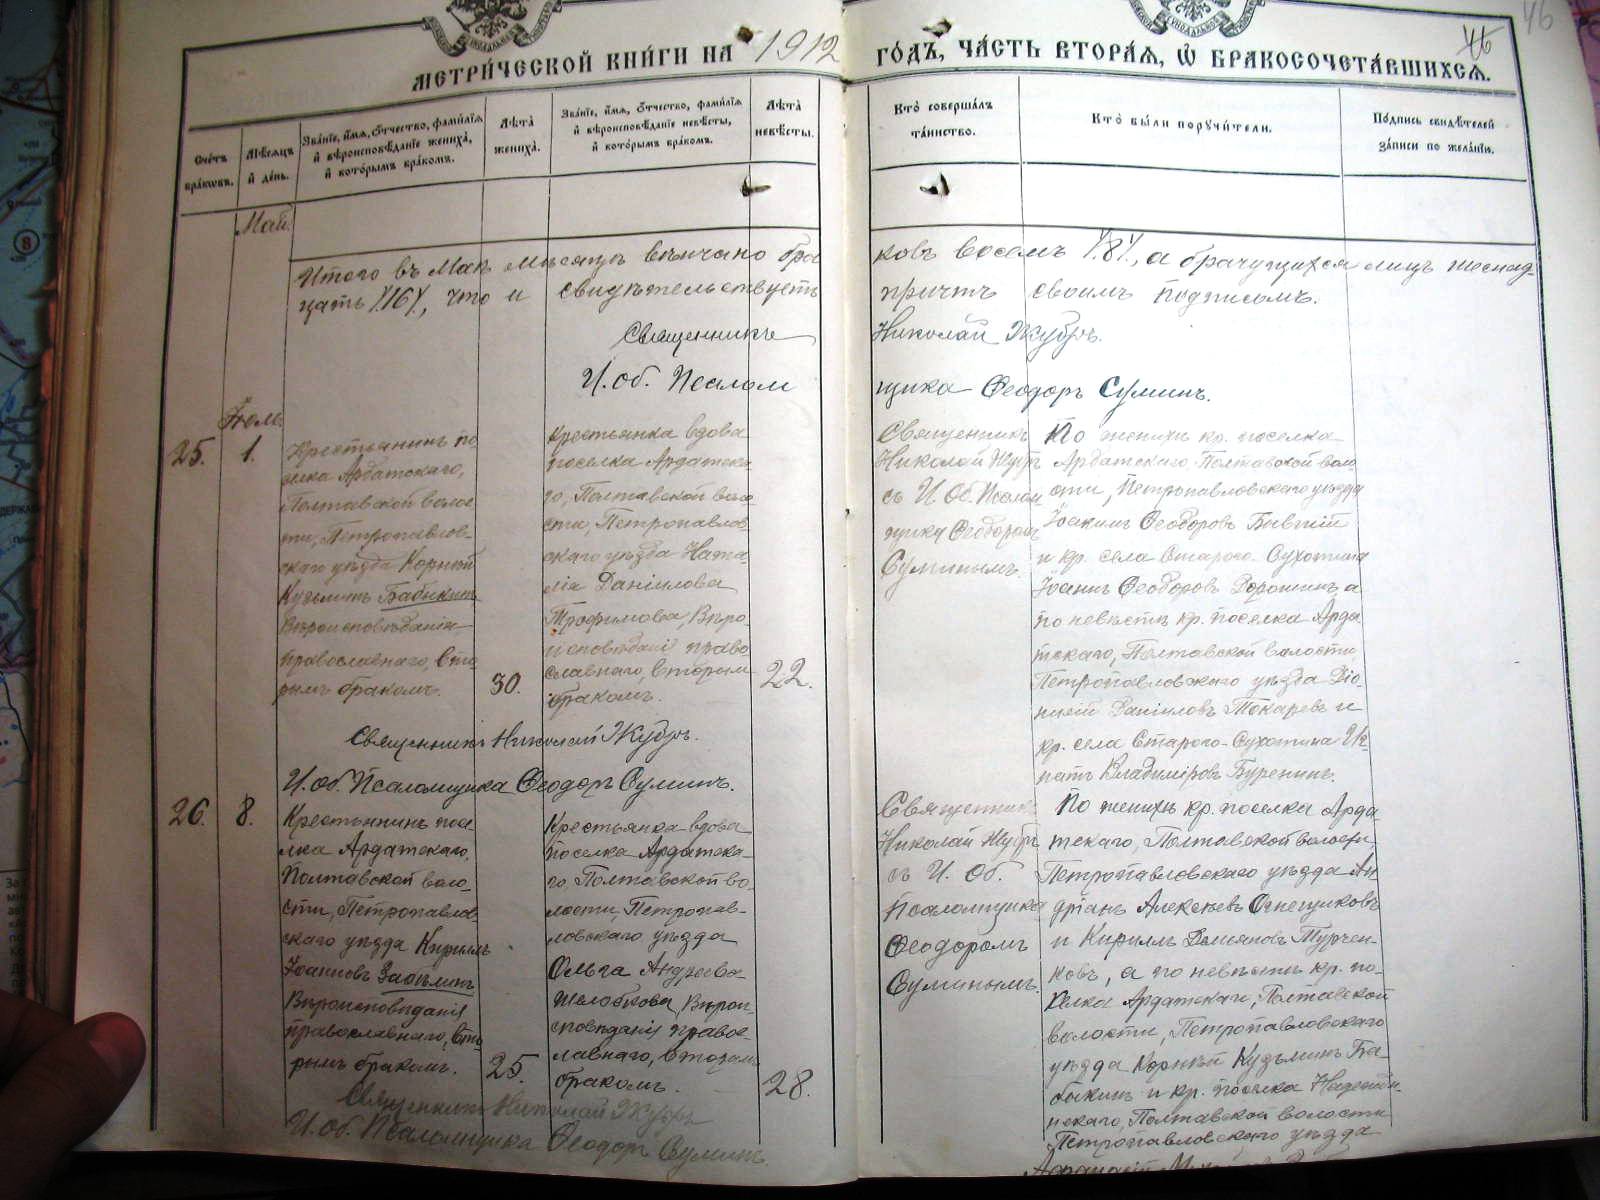 МЕТРИ́ЧЕСКОЙ КНИ́ГИ НА 1912 ГО́ДЪ, ЧА́СТЬ ВТОРА́Я, Ѡ БРАКОСОЧЕТА́ВШИХСЯ.
46
46
Сче́тъ бра́ковъ.
Мѣ́сяцъ и҆ де́нь.
Зва́нїе, и҆́мя, ѻ҆́тчество, фами́лїя
и҆ вѣроисповѣ́данїе жениха̀,
и҆ кото́рымъ бра́комъ.
Лѣта̀ жениха̀.
Зва́нїе, и҆́мя, ѻ҆́тчество, фами́лїя
и҆ вѣроисповѣ́данїе невѣ́сты,
и҆ кото́рымъ бра́комъ.
Лѣта̀ невѣ́сты.
Кто̀ соверша́лъ
та́инство.
Кто̀ бы́ли порꙋчи́тели.
По́дпись свидѣ́телей
за́писи по жела́нїю.
Май.
Итого въ Маѣ мѣсяцѣ вѣнчано бра
ковъ восемь /8/, а брачущихся лицъ шеснад-
цать /16/, что и свидѣтельствуетъ
причтъ своимъ подписомъ.
Священникъ Николай Жубръ.
И. об. Псалом
щика Ѳеодоръ Суминъ.
Іюль.
25. 1.
Крестьянинъ по
селка Ардатскаго,
Полтавской волос
ти, Петропавлов-
скаго уѣзда Корнѣй
Кузьминъ Бабыкинъ
Вѣроисповѣданія
православнаго, вто
рымъ бракомъ.
30.
Крестьянка вдова
поселка Ардатска
го, Полтавской воло
сти, Петропавлов
скаго уѣзда Ната
лія Даніилова
Трофимова, Вѣро
исповѣданія право
славнаго, вторым
бракомъ.
22.
Священникъ
Николай Жубръ
съ И. Об. Псалом
щика Ѳеодоромъ
Суминымъ.
По женихѣ кр. поселка
Ардатскаго, Полтавской воло
сти, Петропавловскаго уѣзда
Іоакимъ Ѳеодоровъ
и кр. села Стараго-Сухотина
Іоаннъ Ѳеодоровъ Дорошинъ, а
по невѣстѣ кр. поселка Арда
тскаго, Полтавской волости
Петропавловскаго уѣзда Діо-
нисій Даніиловъ Токаревъ и
кр. села Стараго-Сухотина Иг
натъ Владиміровъ Буренинъ.
Священникъ Николай Жубръ.
И. об. Псаломщика Ѳеодоръ Суминъ.
26. 8.
Крестьянинъ посе
лка Ардатскаго,
Полтавской воло-
сти, Петропавлов
скаго уѣзда Кириллъ
Іоанновъ Забѣлинъ
Вѣроисповѣданія
православнаго, вто
рымъ бракомъ.
25.
Крестьянка вдова
поселка Ардатска-
го, Полтавской во-
лости, Петропав-
ловскаго уѣзда
Ольга Андреева
Желобкова, Вѣрои
сповѣданія правос
лавнаго, вторым
бракомъ.
28.
Священникъ
Николай Жубръ
съ И. Об.
Псаломщика
Ѳеодоромъ
Суминымъ.
По женихѣ кр. поселка Арда
тскаго, Полтавской волости
Петропавловскаго уѣзда Ан
дріанъ Алексѣевъ Огнещиковъ
и Кириллъ Демьяновъ Турчен-
ковъ, а по невѣстѣ кр. по-
селка Ардатскаго, Полтавской
волости, Петропавловскаго
уѣзда Корнѣй Кузьминъ Ба-
быкинъ и кр. поселка
Полтавской волости
Петропавловскаго уѣзда
Священникъ Николай Жубръ
И. об. Псаломщика Ѳеодоръ Суминъ